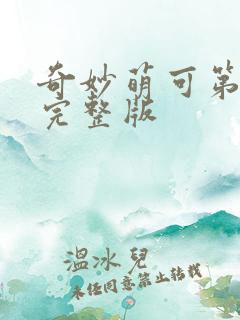 奇妙萌可第
完整版
温冰兒
未经同意禁止转载